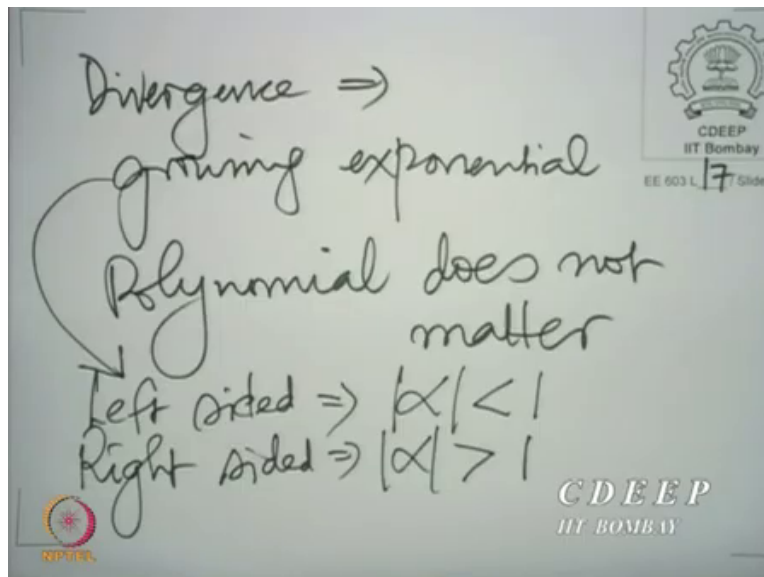 Divergence ⇒
growing exponential
Polynomial does not
matter
Left sided ⇒ |α| < 1
Right sided ⇒ |α| > 1
CDEEP
IIT Bombay
EE 603 L 17 / Slide
CDEEP
IIT BOMBAY
NPTEL